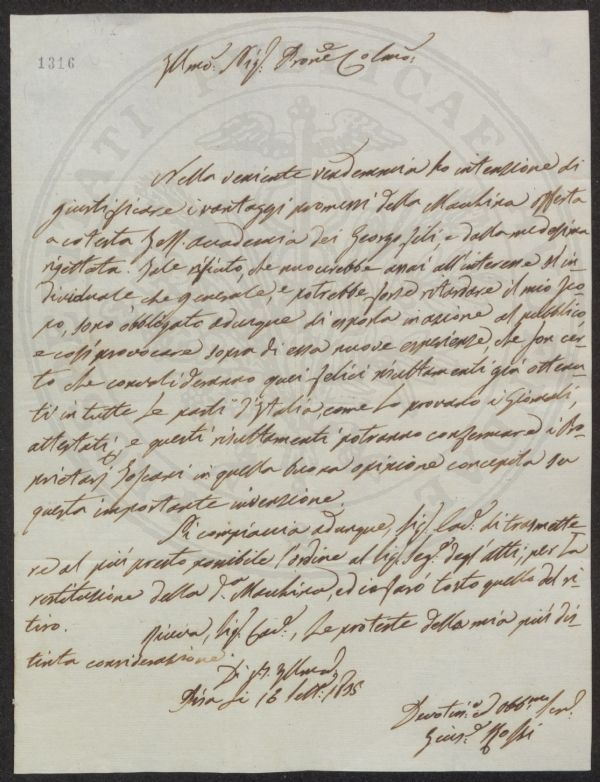 1316
Illmo. Sigr. Prone. Colmo.
Nella veniente vendemmia ho intenzione di
giustificare i vantaggi promessi della Macchina offerta
a cotesta Accademia dei Georgofili, e dalla medesima
rigettata. Tale rifiuto, che nuocerebbe assai all'interesse sì in-
dividuale che generale, e potrebbe forse ritardare il mio sco-
po, sono obbligato adunque di esporla in azione al pubblico
e così provocare sopra di essa nuove esperienze che son cer-
to che convalideranno quei felici resultamenti già ottenu-
ti in tutte le parti d'Italia, come lo provano i Giornali,
attestati, e questi resultamenti potranno confermare i Pro-
prietarj Toscani in quella buona opinione concepita su
questa importante invenzione.
Si compiaccia adunque, Sigr. Cavr. di trasmette-
re al più presto possibile l'ordine al Sigr. Segr. degl'atti, per la
restituzione della da. Macchina, ed io farò tosto quello del ri-
tiro.
Riceva, Sigr. Cavr., le proteste della mia più di-
stinta considerazione.
Di VS. Illma.
Pisa li 16 Sett. 1835
Devotmo. ed Obbmo. Ser.
Rossi